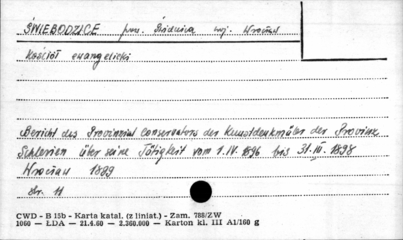 ŚWIEBODZICE pow. Świdnica woj. Wrocław
Kościół ewangelicki
Bericht des Provinzial Conservators der Kunstdenkmäler der Provinz
Schlesien über seine Tätigkeit vom 1.IV.1896 bis 31.III.1898
Wrocław 1899
str. 11
CWD - B 15b - Karta katal. (z liniat.) - Zam. 788/ZW
1060 — LDA — 21.4.60 — 2.360.000 — Karton kl. III A1/160 g